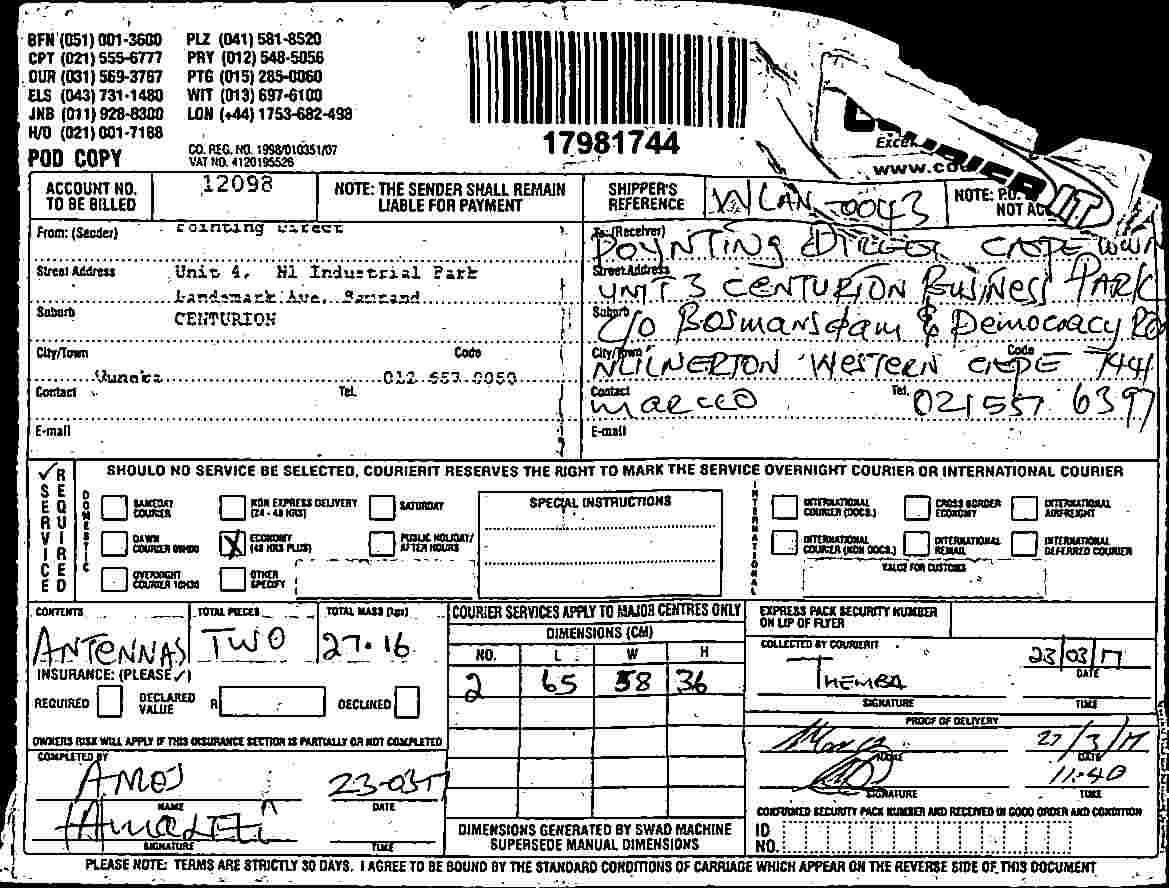 BFN (051) 001-3600 PLZ (041) 581-8520
CPT (021) 555-6777 PRY (012) 548-5056
DUR (031) 569-3767 PTG (015) 285-0060
ELS (043) 731-1480 WIT (013) 697-6100
JNB (011) 928-8300 LON (+44) 1753-682-498
H/O (021) 001-7188
POD COPY
CO. REG. NO. 1998/010351/07
VAT NO. 4120195526
17981744
www.cou
ACCOUNT NO. TO BE BILLED
12098
NOTE: THE SENDER SHALL REMAIN LIABLE FOR PAYMENT
SHIPPER'S REFERENCE
WLAN-0043
NOTE: P.O.
NOT AC
From: (Sender)
Street Address Unit 4, N1 Industrial Park
Landmark Ave, Samrand
Suburb CENTURION
City/Town Code
012 657 0050
Contact Tel.
E-mail
To: (Receiver)
POYNTING DIRECT CAPE TOWN
Street Address
UNIT 3 CENTURION BUSINESS PARK
Suburb
C/O Bosmansdam & Democracy RD
City/Town Code
MILNERTON WESTERN CAPE 7441
Contact Tel.
MARCCO 021 557 6397
E-mail
✓ SERVICE REQUIRED
SHOULD NO SERVICE BE SELECTED, COURIERIT RESERVES THE RIGHT TO MARK THE SERVICE OVERNIGHT COURIER OR INTERNATIONAL COURIER
DOMESTIC
SAMEDAY COURIER
NON EXPRESS DELIVERY (24 - 48 HRS)
SATURDAY
DAWN COURIER 09H00
X ECONOMY (48 HRS PLUS)
PUBLIC HOLIDAY/ AFTER HOURS
OVERNIGHT COURIER 10H30
OTHER SPECIFY
SPECIAL INSTRUCTIONS
INTERNATIONAL
INTERNATIONAL COURIER (DOCS.)
CROSS BORDER ECONOMY
INTERNATIONAL AIRFREIGHT
INTERNATIONAL COURIER (NON DOCS.)
INTERNATIONAL REMAIL
INTERNATIONAL DEFERRED COURIER
VALUE FOR CUSTOMS
CONTENTS
ANTENNAS
TOTAL PIECES
TWO
TOTAL MASS (kgs)
27.16
INSURANCE: (PLEASE ✓)
REQUIRED
DECLARED VALUE R
DECLINED
OWNERS RISK WILL APPLY IF THIS INSURANCE SECTION IS PARTIALLY OR NOT COMPLETED
COMPLETED BY
AMOS 23-03-17
NAME DATE
SIGNATURE TIME
COURIER SERVICES APPLY TO MAJOR CENTRES ONLY
DIMENSIONS (CM)
NO. L W H
2 65 58 36
DIMENSIONS GENERATED BY SWAD MACHINE
SUPERSEDE MANUAL DIMENSIONS
EXPRESS PACK SECURITY NUMBER
ON LIP OF FLYER
COLLECTED BY COURIERIT
THEMBA 23/03/17
DATE
SIGNATURE TIME
PROOF OF DELIVERY
27/3/17
NAME DATE
11:40
SIGNATURE TIME
CONFIRMED SECURITY PACK NUMBER AND RECEIVED IN GOOD ORDER AND CONDITION
ID NO.
PLEASE NOTE: TERMS ARE STRICTLY 30 DAYS. I AGREE TO BE BOUND BY THE STANDARD CONDITIONS OF CARRIAGE WHICH APPEAR ON THE REVERSE SIDE OF THIS DOCUMENT